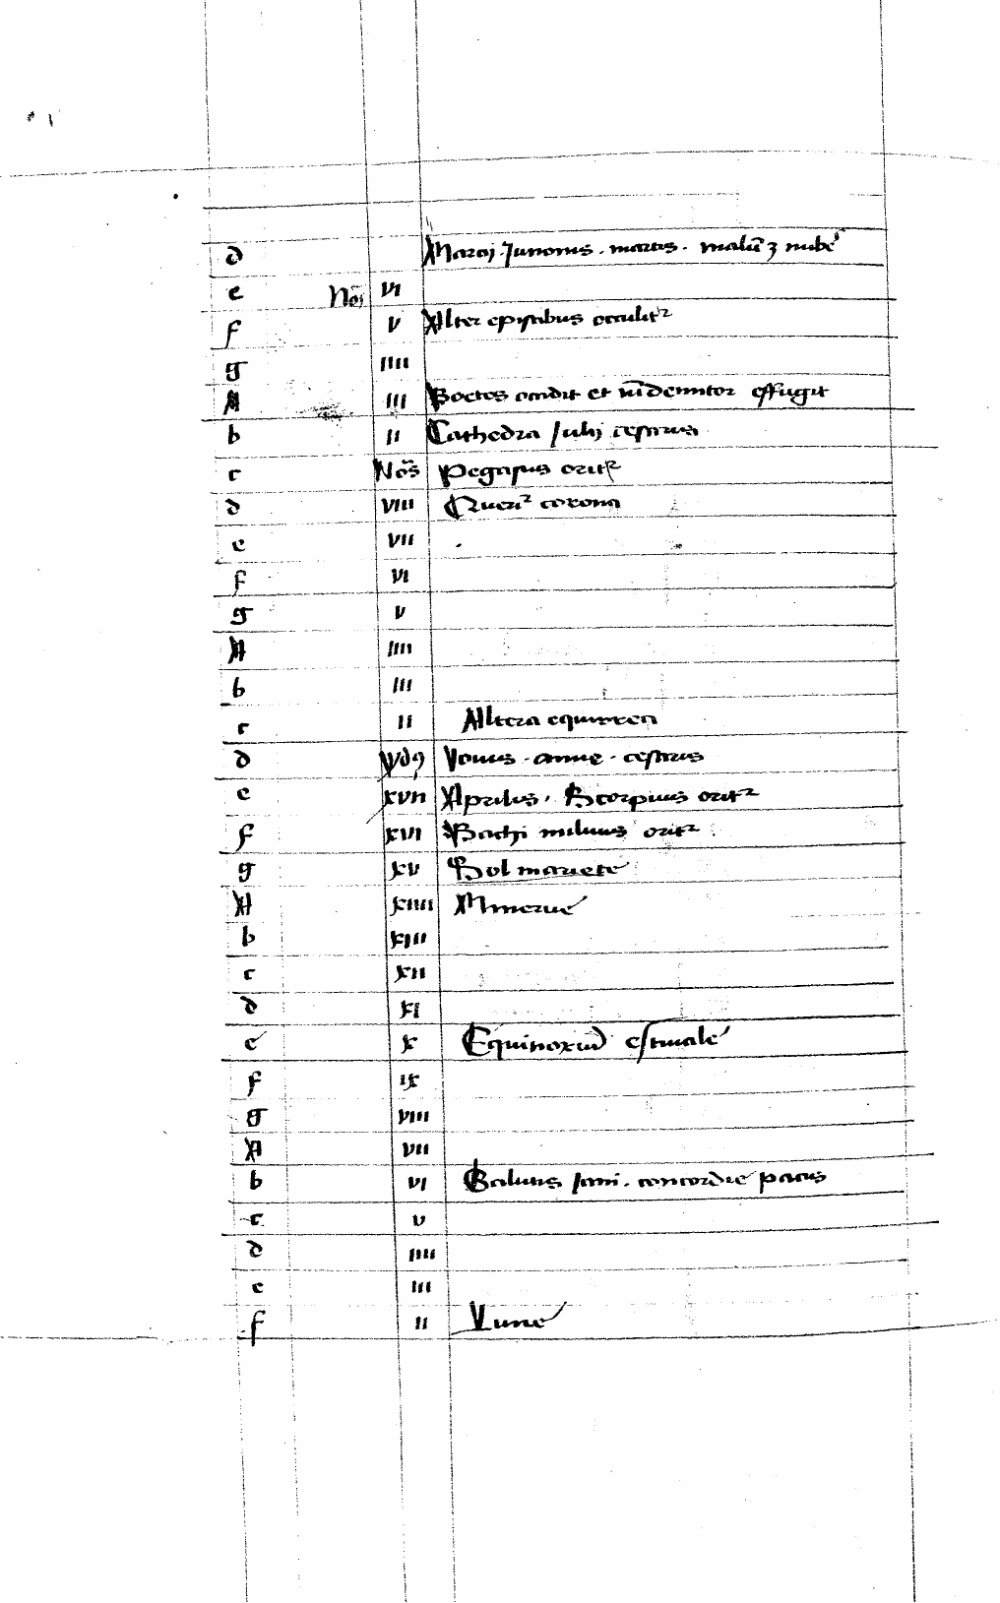 d Marcij · Junonis · martis · malū ʒ nube
e Nōs VI
f V Alter epistibus occulit᷑
g IIII
A III Boetes occidit et vīdemitor effugit
b II Cathedra Julij cesaris
c Nōs Pegasus orit᷑
d VIII Queri᷑ corona
e VII
f VI
g V
A IIII
b III
c II Altera equirrea
d ydꝰ Iouis · anne · cesaris
e xvii Aprilis · Scorpius orit᷑
f xvi Bachi miluus orit᷑
g xv Sol in ariete
A xiiii Minerue
b xiii
c xii
d xi
e x Equinoxiū estiuale
f ix
g viii
A vii
b vi Salutis Jani · concordie pacis
c v
d iiii
e iii
f ii Lune